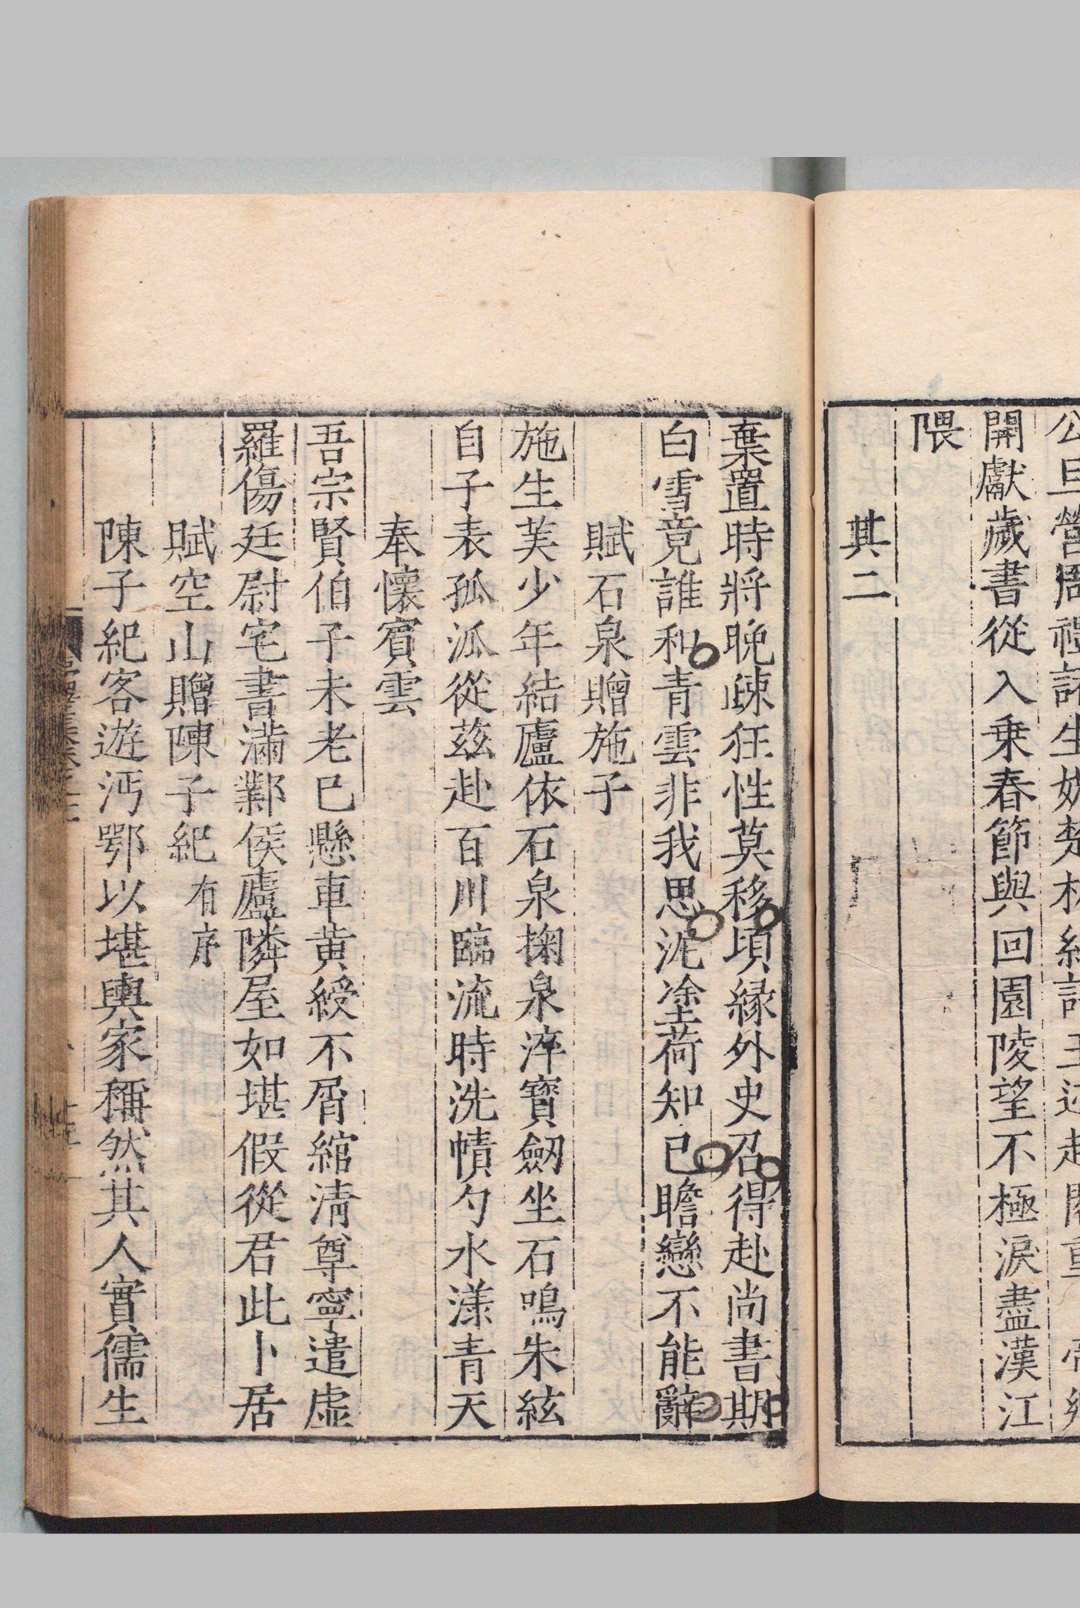 開獻歲書從入乗春節與回園陵望不極淚盡漢江
隈
其二
棄置時將晚疎狂性莫移頃縁外史召得赴尚書期
白雪竟誰和青雲非我思泥塗荷知已瞻戀不能辭
賦石泉贈施子
施生美少年結廬依石泉掬泉淬寶劔坐石鳴朱絃
自子表孤泒從茲赴百川臨流時洗幘勺水漾青天
奉懷賓雲
吾宗賢伯子未老已懸車黄綬不屑綰清尊寧遣虛
羅傷廷尉宅書滿鄴侯廬隣屋如堪假從君此卜居
賦空山贈陳子紀有序
陳子紀客遊沔鄂以堪輿家稱然其人實儒生